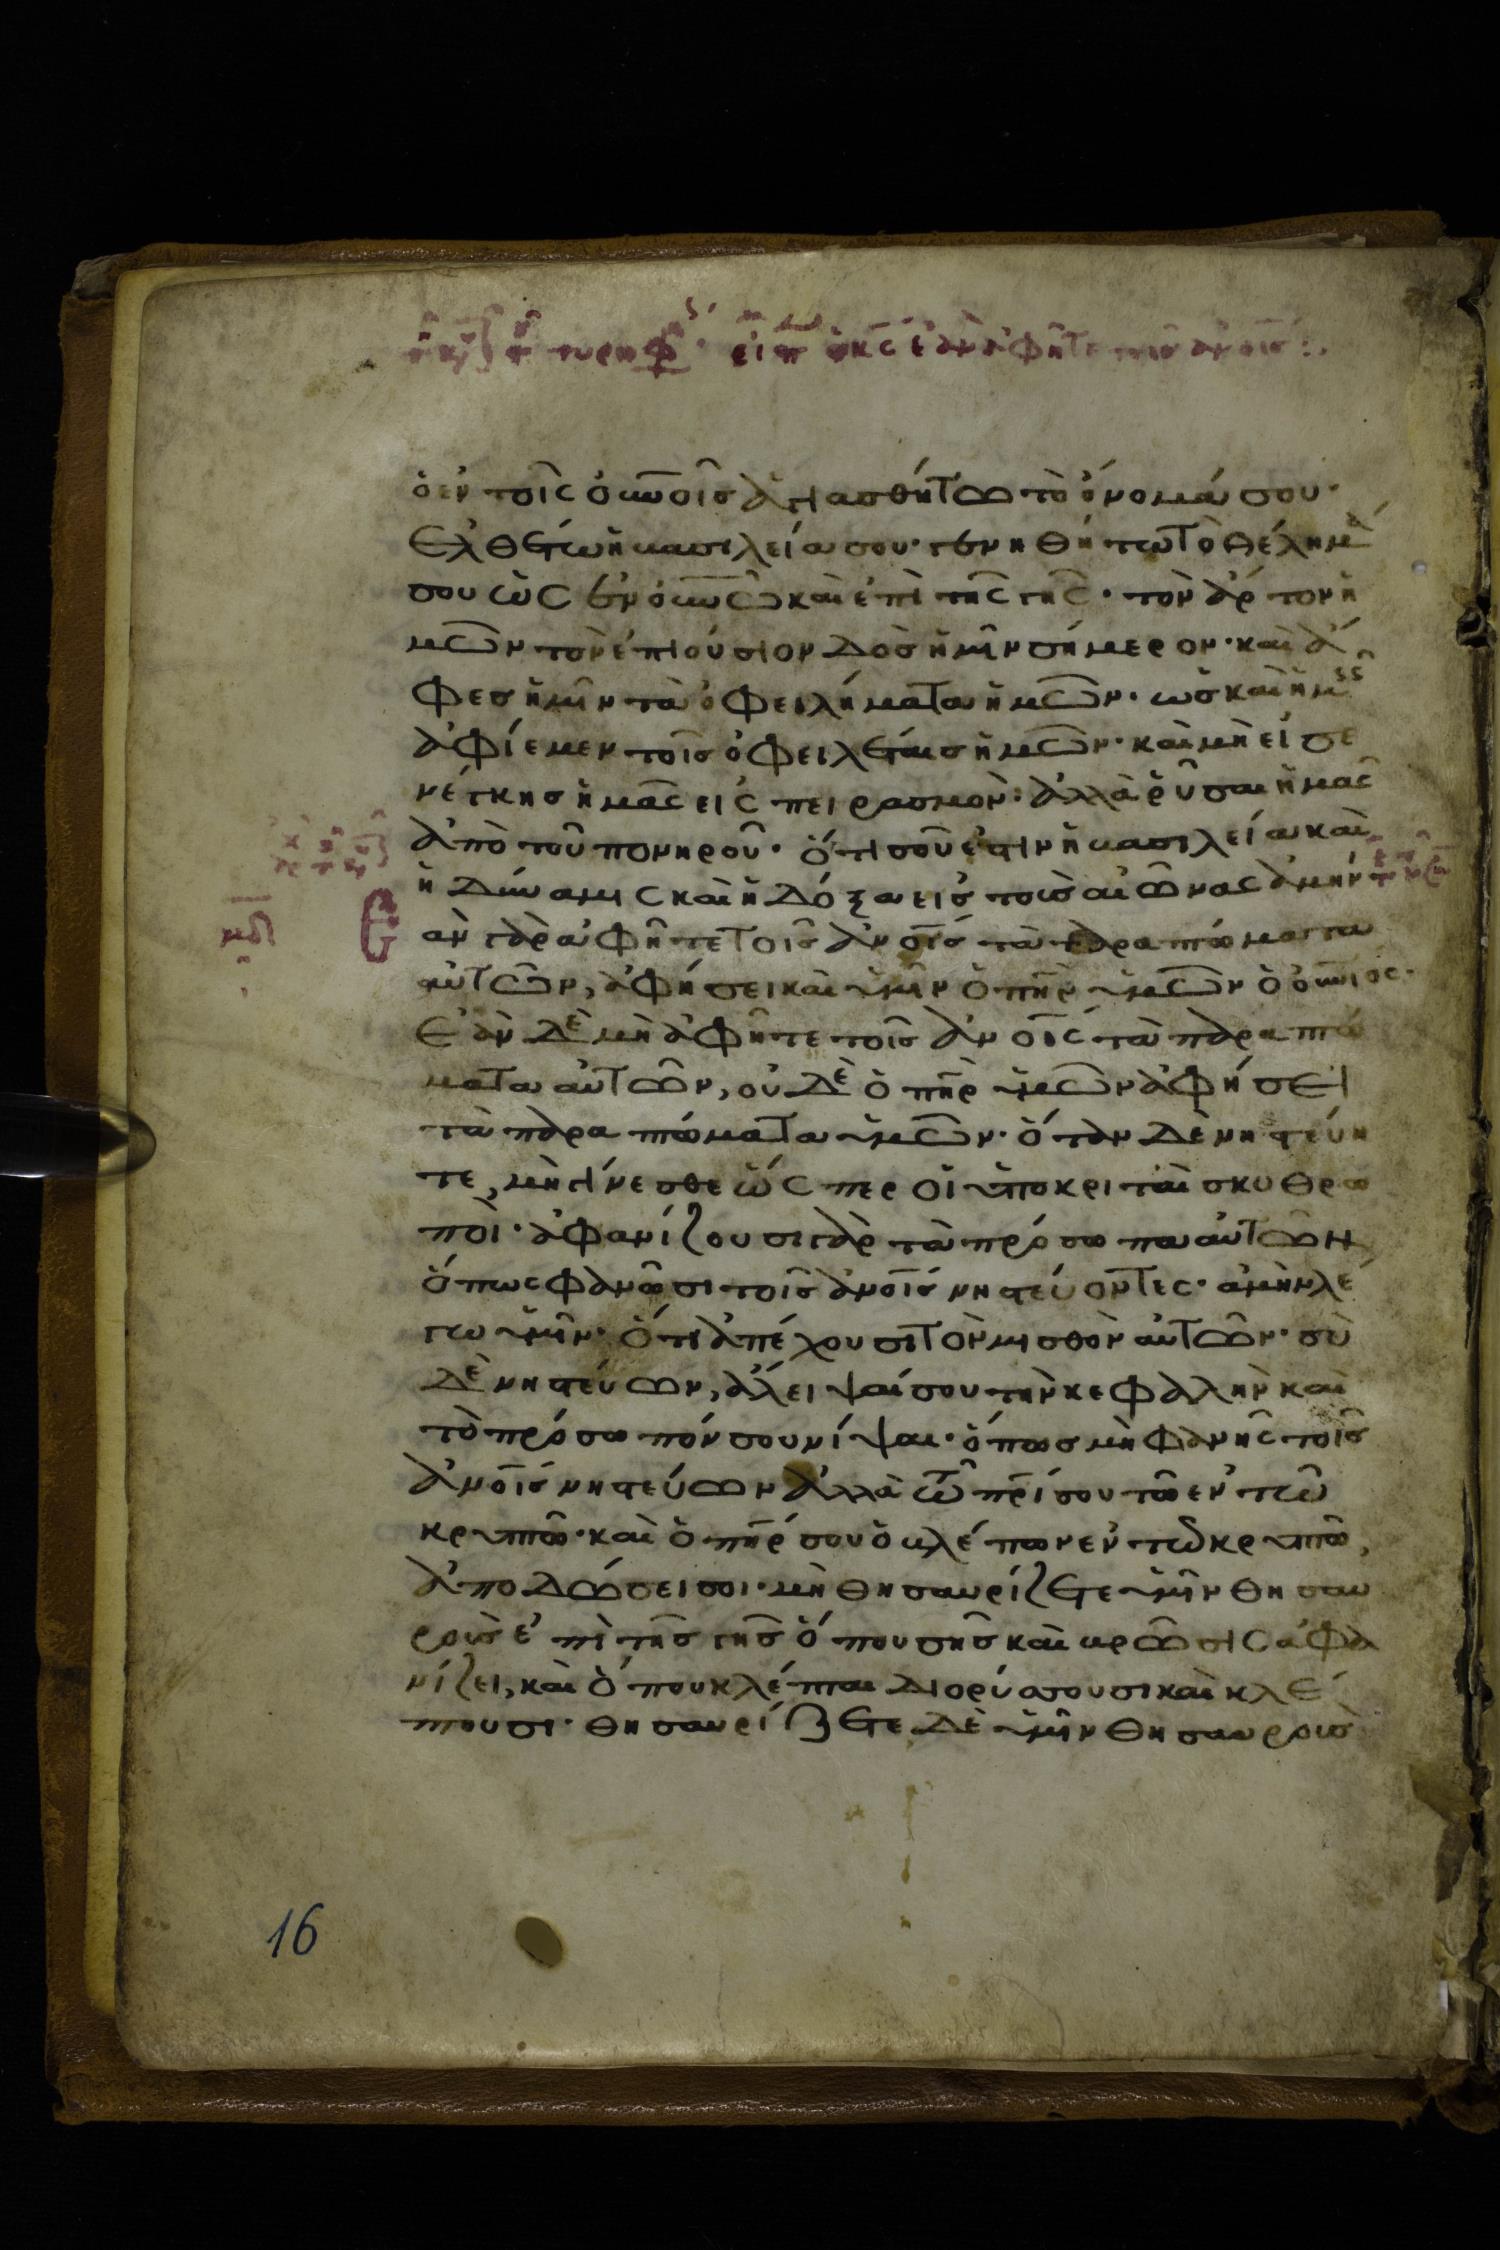 ὁ ἐν τοῖς οὐνοῖς ἁγιασθήτω τὸ ὄνομά σου·
ἐλθέτω ἡ βασιλεία σου· γενηθήτω τὸ θέλημά
σου ὡς ἐν οὐνῶ καὶ ἐπὶ τῆς γῆς· τὸν ἄρτον ἡ
μῶν τὸν ἐπιούσιον δὸς ἡμῖν σήμερον· καὶ ἄ
φες ἡμῖν τὰ ὀφειλήματα ἡμῶν· ὡς καὶ ἡμεῖς
ἀφίεμεν τοῖς ὀφειλέταις ἡμῶν· καὶ μὴ εἰσε
νέγκης ἡμᾶς εἰς πειρασμὸν· ἀλλὰ ῥῦσαι ἡμᾶς
ἀπὸ τοῦ πονηροῦ· ὅτι σοῦ ἐστιν ἡ βασιλεία καὶ
ἡ δύναμις καὶ ἡ δόξα εἰς τοὺς αἰῶνας ἀμήν
μδ
Ε
ὰν γὰρ ἀφῆτε τοῖς ἀνοῖς τὰ παραπτώματα
αὐτῶν, ἀφήσει καὶ ὑμῖν ὁ πηρ ὑμῶν ὁ οὐνιος·
ἐὰν δὲ μὴ ἀφῆτε τοῖς ἀνοῖς τὰ παραπτώ
ματα αὐτῶν, οὐδὲ ὁ πηρ ὑμῶν ἀφήσει
τὰ παραπτώματα ὑμῶν· ὅταν δὲ νηστεύη
τε, μὴ γίνεσθε ὥσπερ οἱ ὑποκριταὶ σκυθρω
ποὶ· ἀφανίζουσι γὰρ τὰ πρόσωπα αὐτῶν
ὅπως φανῶσι τοῖς ἀνοῖς νηστεύοντες· ἀμὴν λέ
γω ὑμῖν· ὅτι ἀπέχουσι τὸν μισθὸν αὐτῶν· σὺ
δὲ νηστεύων, ἄλειψαί σου τὴν κεφαλὴν καὶ
τὸ πρόσωπόν σου νίψαι· ὅπως μὴ φανῆς τοῖς
ἀνοῖς νηστεύων ἀλλὰ τῶ πρί σου τῶ ἐν τῶ
κρυπτῶ· καὶ ὁ πηρ σου ὁ βλέπων ἐν τῶ κρυπτῶ,
ἀποδώσει σοι· μὴ θησαυρίζετε ὑμῖν θησαυ
ροὺς ἐπὶ τῆς γῆς ὅπου σὴς καὶ βρῶσις ἀφα
νίζει, καὶ ὅπου κλέπται διορύσσουσι καὶ κλέ
πτουσι· θησαυρίζετε δὲ ὑμῖν θησαυροὺς
16